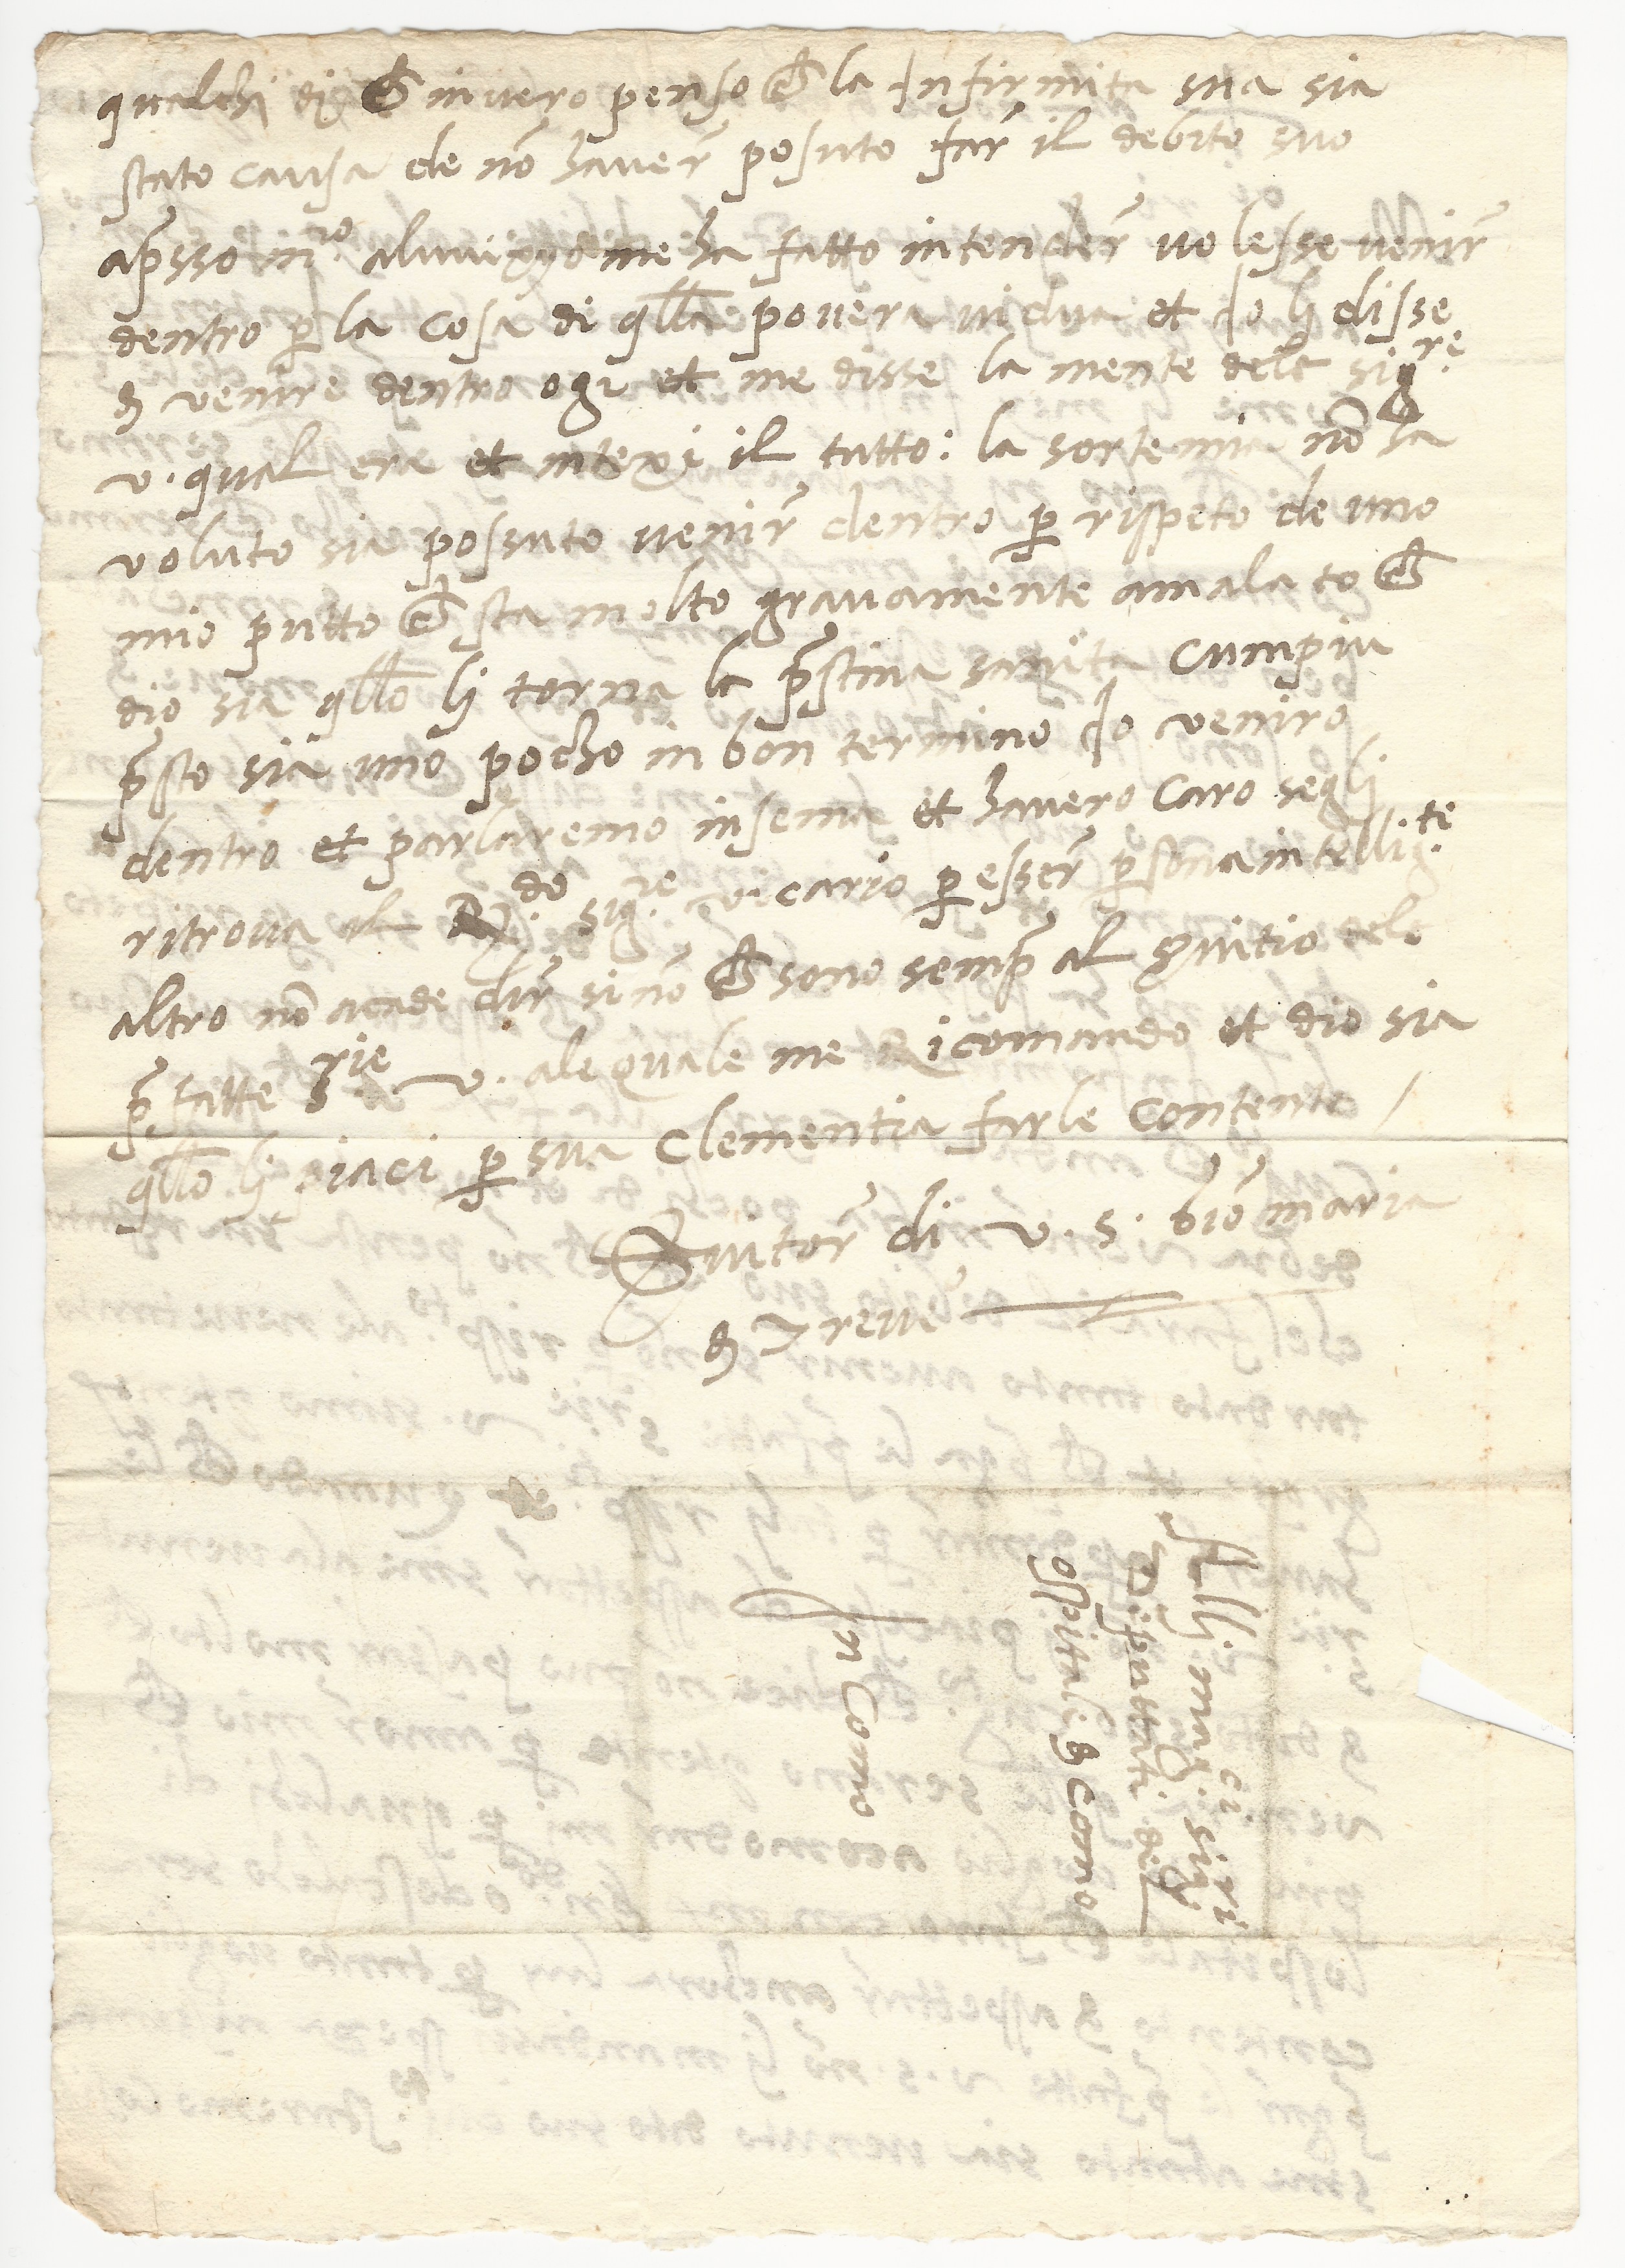 qualchi di ch̃ in vero penso ch̃ la Infirmita sua sia
stato causa de nõ haver̃ posuto far̃ il debito suo
ap̃sso m.ro aluuixyo me ha fatto intender̃ volesse venir̃
dentro p̱ la cosa di q̃lla povera vidua et Io li disse
de venire dentro ogi et me disse la mente dele sig.re
v. qual era et intexi il tutto: la sorte mia nõ ha
voluto sia possuto venir̃ dentro p̱ rispeto de uno
mio putto ch̃ sta molto gravamente amalato ch̃
dio sia q̃llo li torna la p̃stina sanita cum piu
p̃sto sia uno pocho in bon termino Io veniro
dentro et parlaremo insema et havero caro se gli
ritrova il R.do sig.re vicario p̱ esser̃ p̱sona intellig.te
altro nõ acade dir̃ si nõ ch̃ sono semp̃ al s̃vitio dele
p̃fatte s.rie v. ale quale me Ricomando et dio sia
q̃llo li piaci p̱ sua Clementia farle contente /
S̃vitor̃ di v. s. Giõ maria
de Treve
Alli mag.ci sig.ri
Diputtati dil
ospitale de Como
In Como